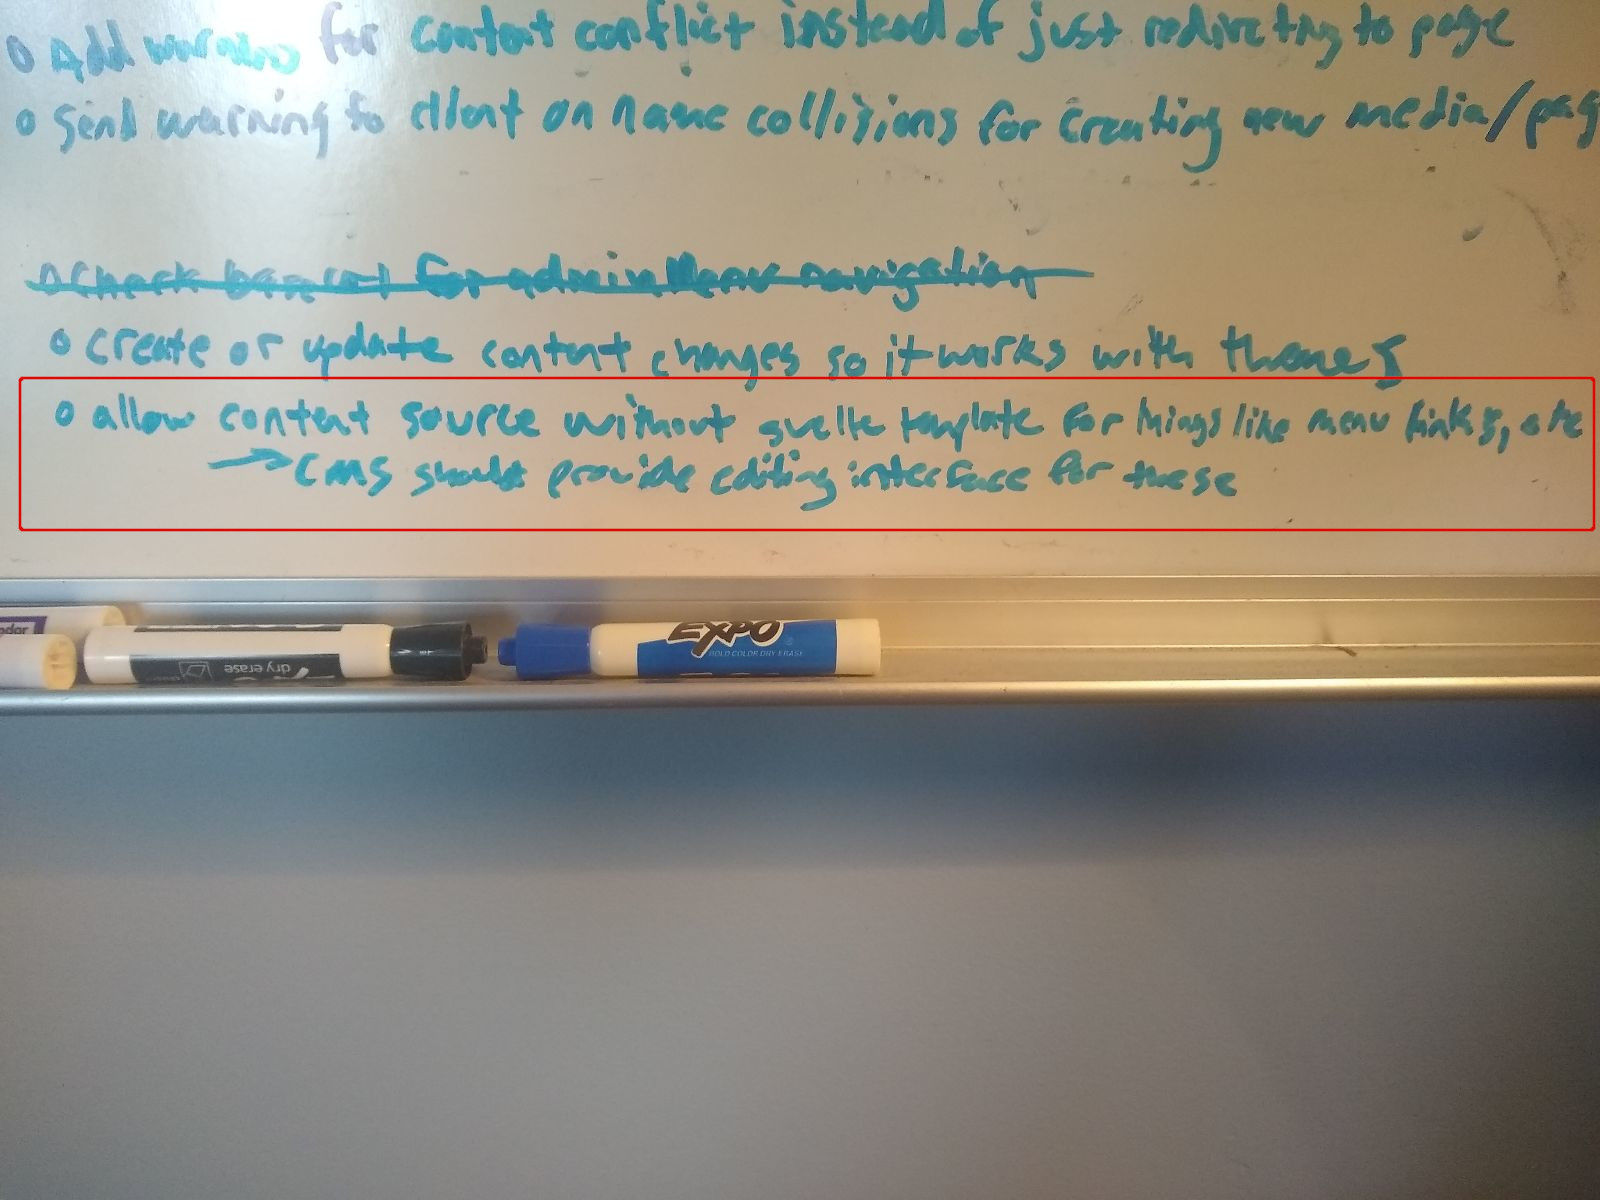 o Add warning for content conflict instead of just redirecting to page
o Send warning to client on name collisions for creating new media/pag
o Check base url for adminMenu navigation
o create or update content changes so it works with themes
o allow content source without svelte template for things like menu links, etc
→ CMS should provide editing interface for these
odor
dry erase
EXPO
BOLD COLOR DRY ERASE